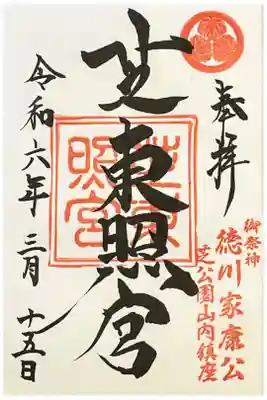 奉拝
御祭神
徳川家康公
芝公園山内鎮座
芝東照宮
芝東照宮
令和六年 三月 十五日